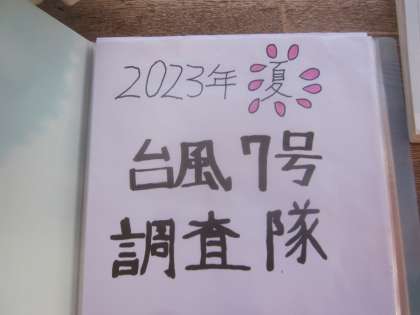 2023年 夏
台風7号
調査隊